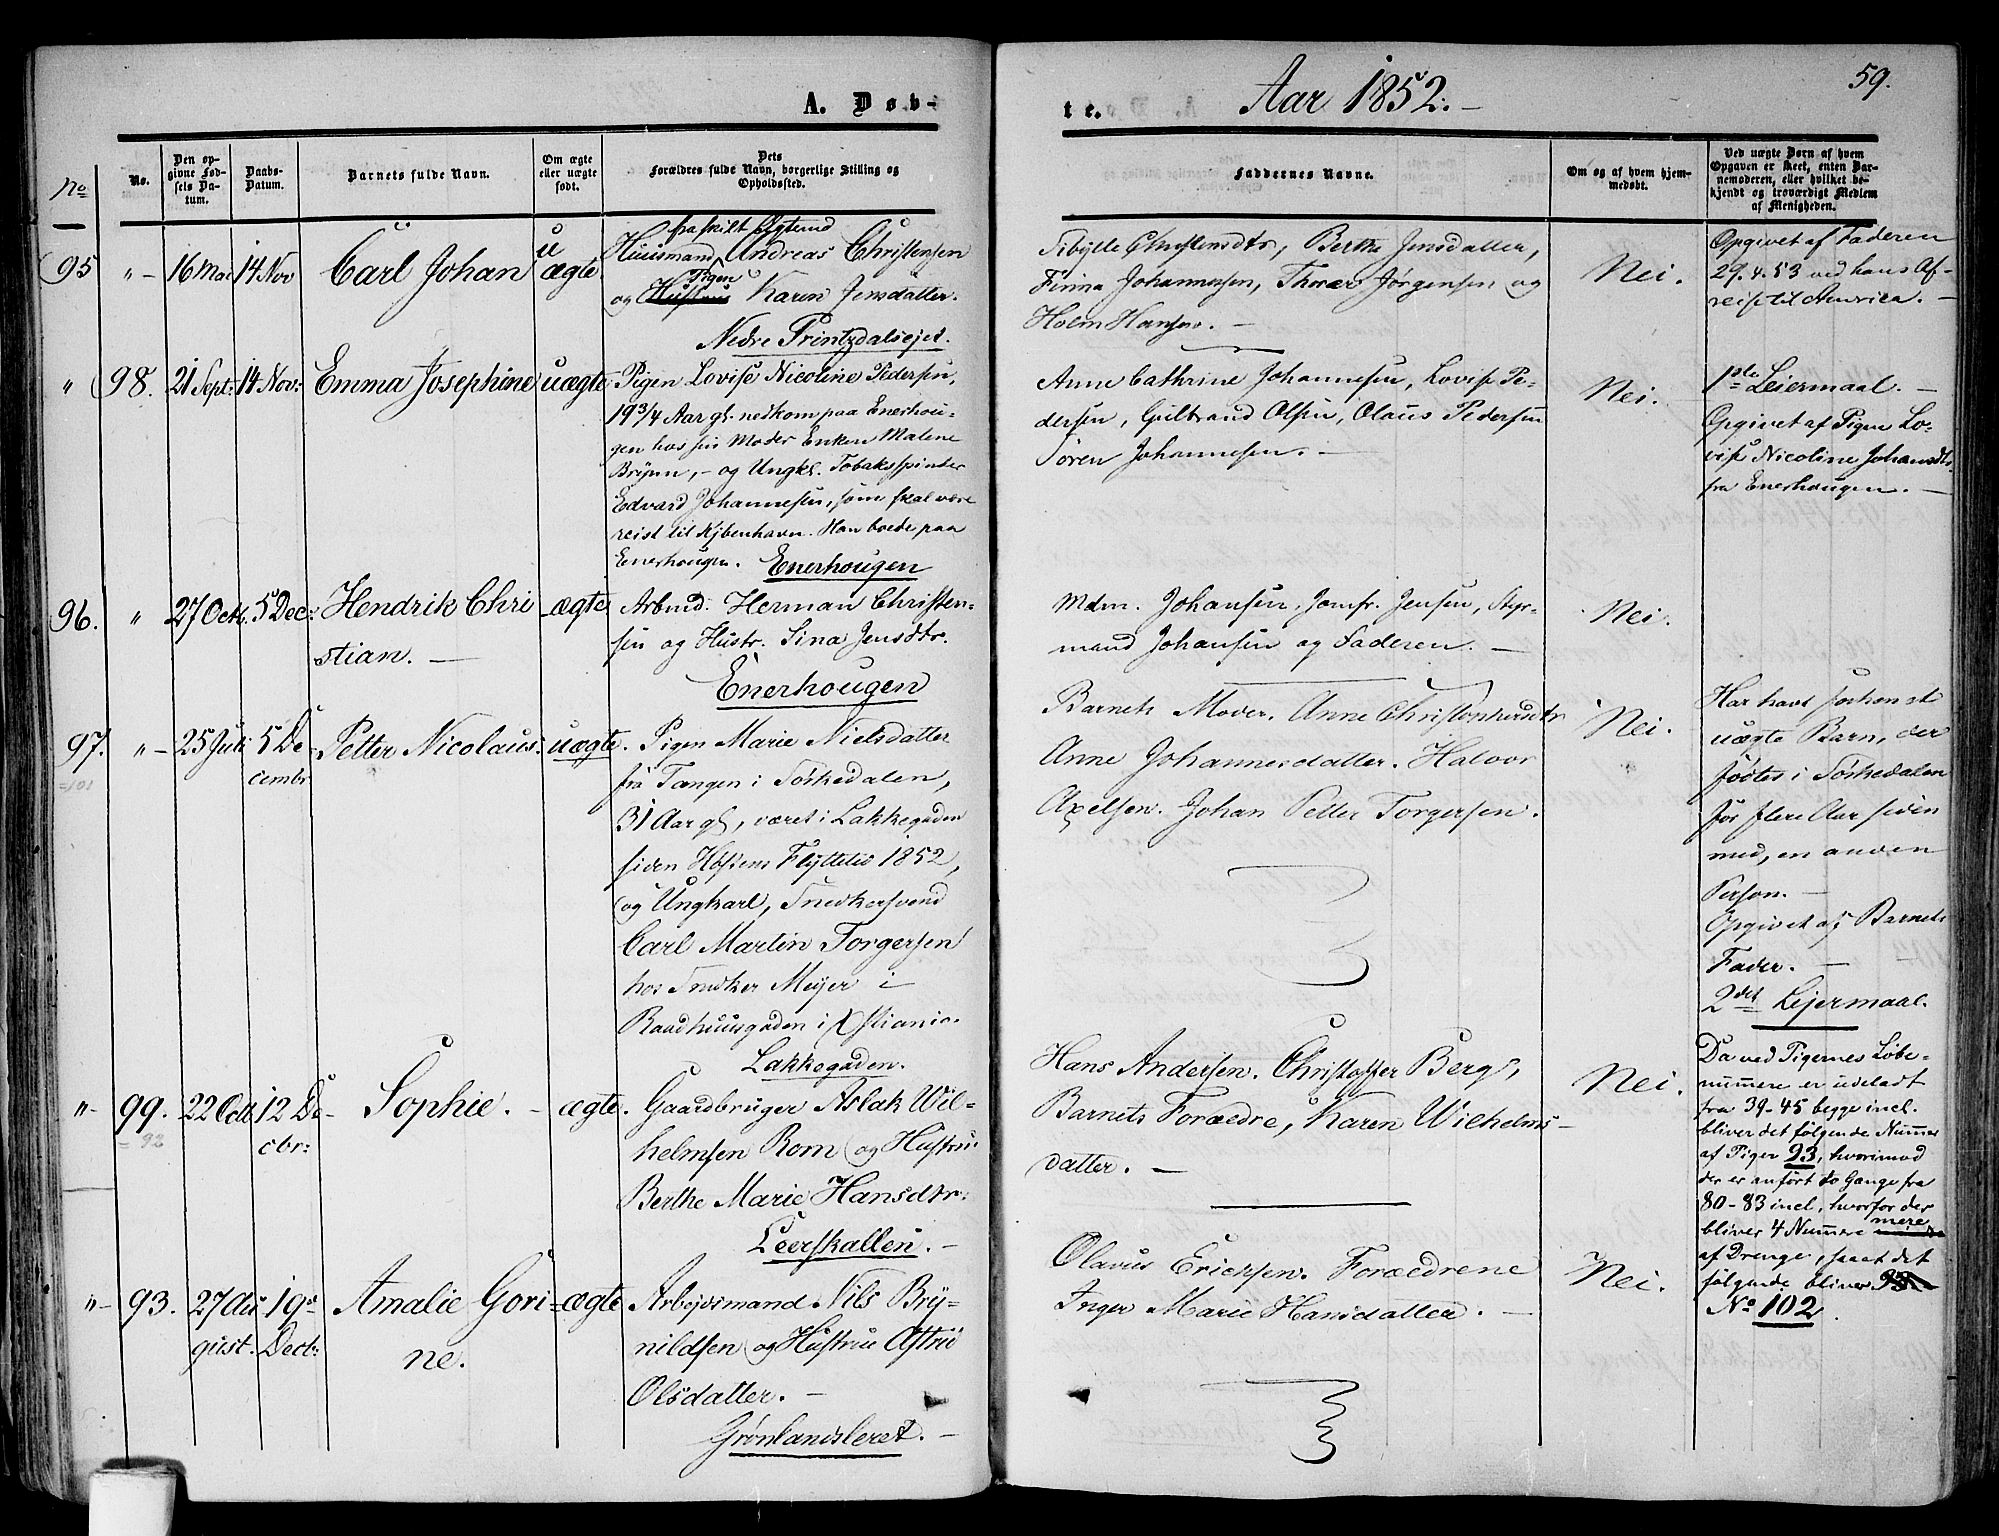 A. Døb-
te.
Aar 1852.
59.
No
No.
Den op-
givne Fød-
sels Da-
tum.
Daabs-
Datum.
Barnets fulde Navn.
Om ægte
eller uægte
født.
Dets
Forældres fulde Navn, borgerlige Stilling og
Opholdssted.
Faddernes Navne.
Om og af hvem hjem-
medøbt.
Ved uægte Børn af hvem
Opgaven er skeet, enten Bar-
nemoderen, eller hvilket be-
kjendt og troværdigt Medlem
af Menigheden.
95 " - 16 Mai 14 Nov Carl Johan
u
ægte
fraskilt Ægtemd
Huusmand Andreas Christensen
Pigen
og Hustrue Karen Jensdatter.
Nedre Printzdalsejet.
Sibylle Christensdtr, Berthe Jensdatter,
Finna Johannessen, Thorer Jørgensen og
Holm Hansen. -
Nei.
Opgivet af Faderen
29.4.53 ved hans Af-
reise til America. -
" 98. 21 Sept: 14 Nov: Emma Josephine uægte
Pigen Lovise Nicoline Pedersen,
19 3/4 Aar gl. nedkom paa Enerhou-
gen hos sin Moder Enken Malene
Brynn, - og Ungkl. Tobaksspinder
Edvard Johannesen, som skal være
reist til Kjbenhavn. Han boede paa
Enerhougen. Enerhougen
Anne Cathrine Johannesen, Lovise Pe-
dersen, Gulbrand Olsen, Olaus Pedersen
Søren Johannesen. -
Nei.
1ste Leiermaal. -
Opgivet af Pigen Lo-
vise Nicoline Johansdtr
fra Enerhougen. -
96. " 27 Octb. 5 Dec: Hendrik Chri-
stian. -
ægte
Arbmd: Herman Christen-
sen og Hustr. Sina Jensdtr.
Enerhougen
Mdm. Johansen, Jomfr. Jensen, Styr-
mand Johansen og Faderen. -
Nei.
97. " - 25 Juli 5 De-
cembr
=101
Petter Nicolaus: uægte.
Pigen Marie Nielsdatter
fra Tangen i Sørkedalen,
31 Aar gl, været i Lakkegaden
siden Høstens Flyttetid 1852,
og Ungkarl, Snedkersvend
Carl Martin Torgersen
hos Snedker Meyer i
Raadhuusgaden i Xstiania.
Lakkegaden.
Barnets Moder. Anne Christophersdtr
Anne Johannesdatter. Halvor
Axelsen. Johan Petter Torgersen.
Nei.
Har havt forhen et
uægte Barn, der
fødtes i Sørkedalen
for flere Aar siden
med, en anden
Person. -
Opgivet af Barnets
Fader. -
2det Lejermaal.
" - 99. 22 Octb 12 De-
cbr:
= 92
Sophie. - ægte.
Gaardbruger Aslak Wil-
helmsen Rom og Hustrue
Berthe Marie Hansdtr:
Leerskallen. -
Hans Andersen. Christoffer Berg,
Barnets Forældre, Karen Wilhelms-
datter. -
Nei.
Da ved Pigernes Løbe-
numere er udeladt
fra 39-45 begge incl.
bliver det følgende Numer
af Piger 93, hvorimod
der er anført to Gange fra
80-83 incl, hvorfor der
mere
bliver 4 Numere
af Drenge, saaat det
følgende bliver 98
No 102.
" - 93. 27 Au-
gust.
19de
Decb:
Amalie Gori-
ne.
ægte
Arbejdsmand Nils Bry-
nildsen og Hustrue Astrid
Olsdatter. -
Grønlandsleret. -
Olavus Ericksen. Forældrene
Inger Marie Hansdatter. -
Nei.